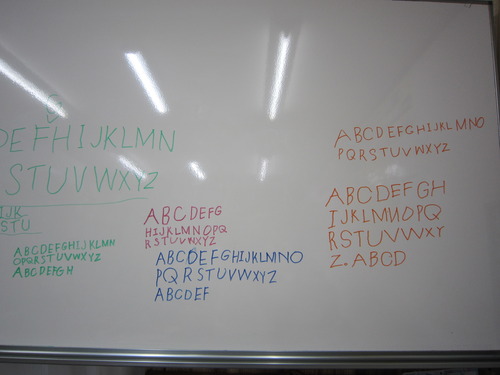 G
DEFHIJKLMN
STUVWXYZ
IJK
STU
ABCDEFGHIJKLMN
OPQRSTUVWXYZ
ABCDEFGH
ABCDEFG
HIJKLMNOPQ
RSTUVWXYZ
ABCDEFGHIJKLMNO
PQRSTUVWXYZ
ABCDEF
ABCDEFGHIJKLMNO
PQRSTUVWXYZ
ABCDEFGH
IJKLMNOPQ
RSTUVWXY
Z.ABCD